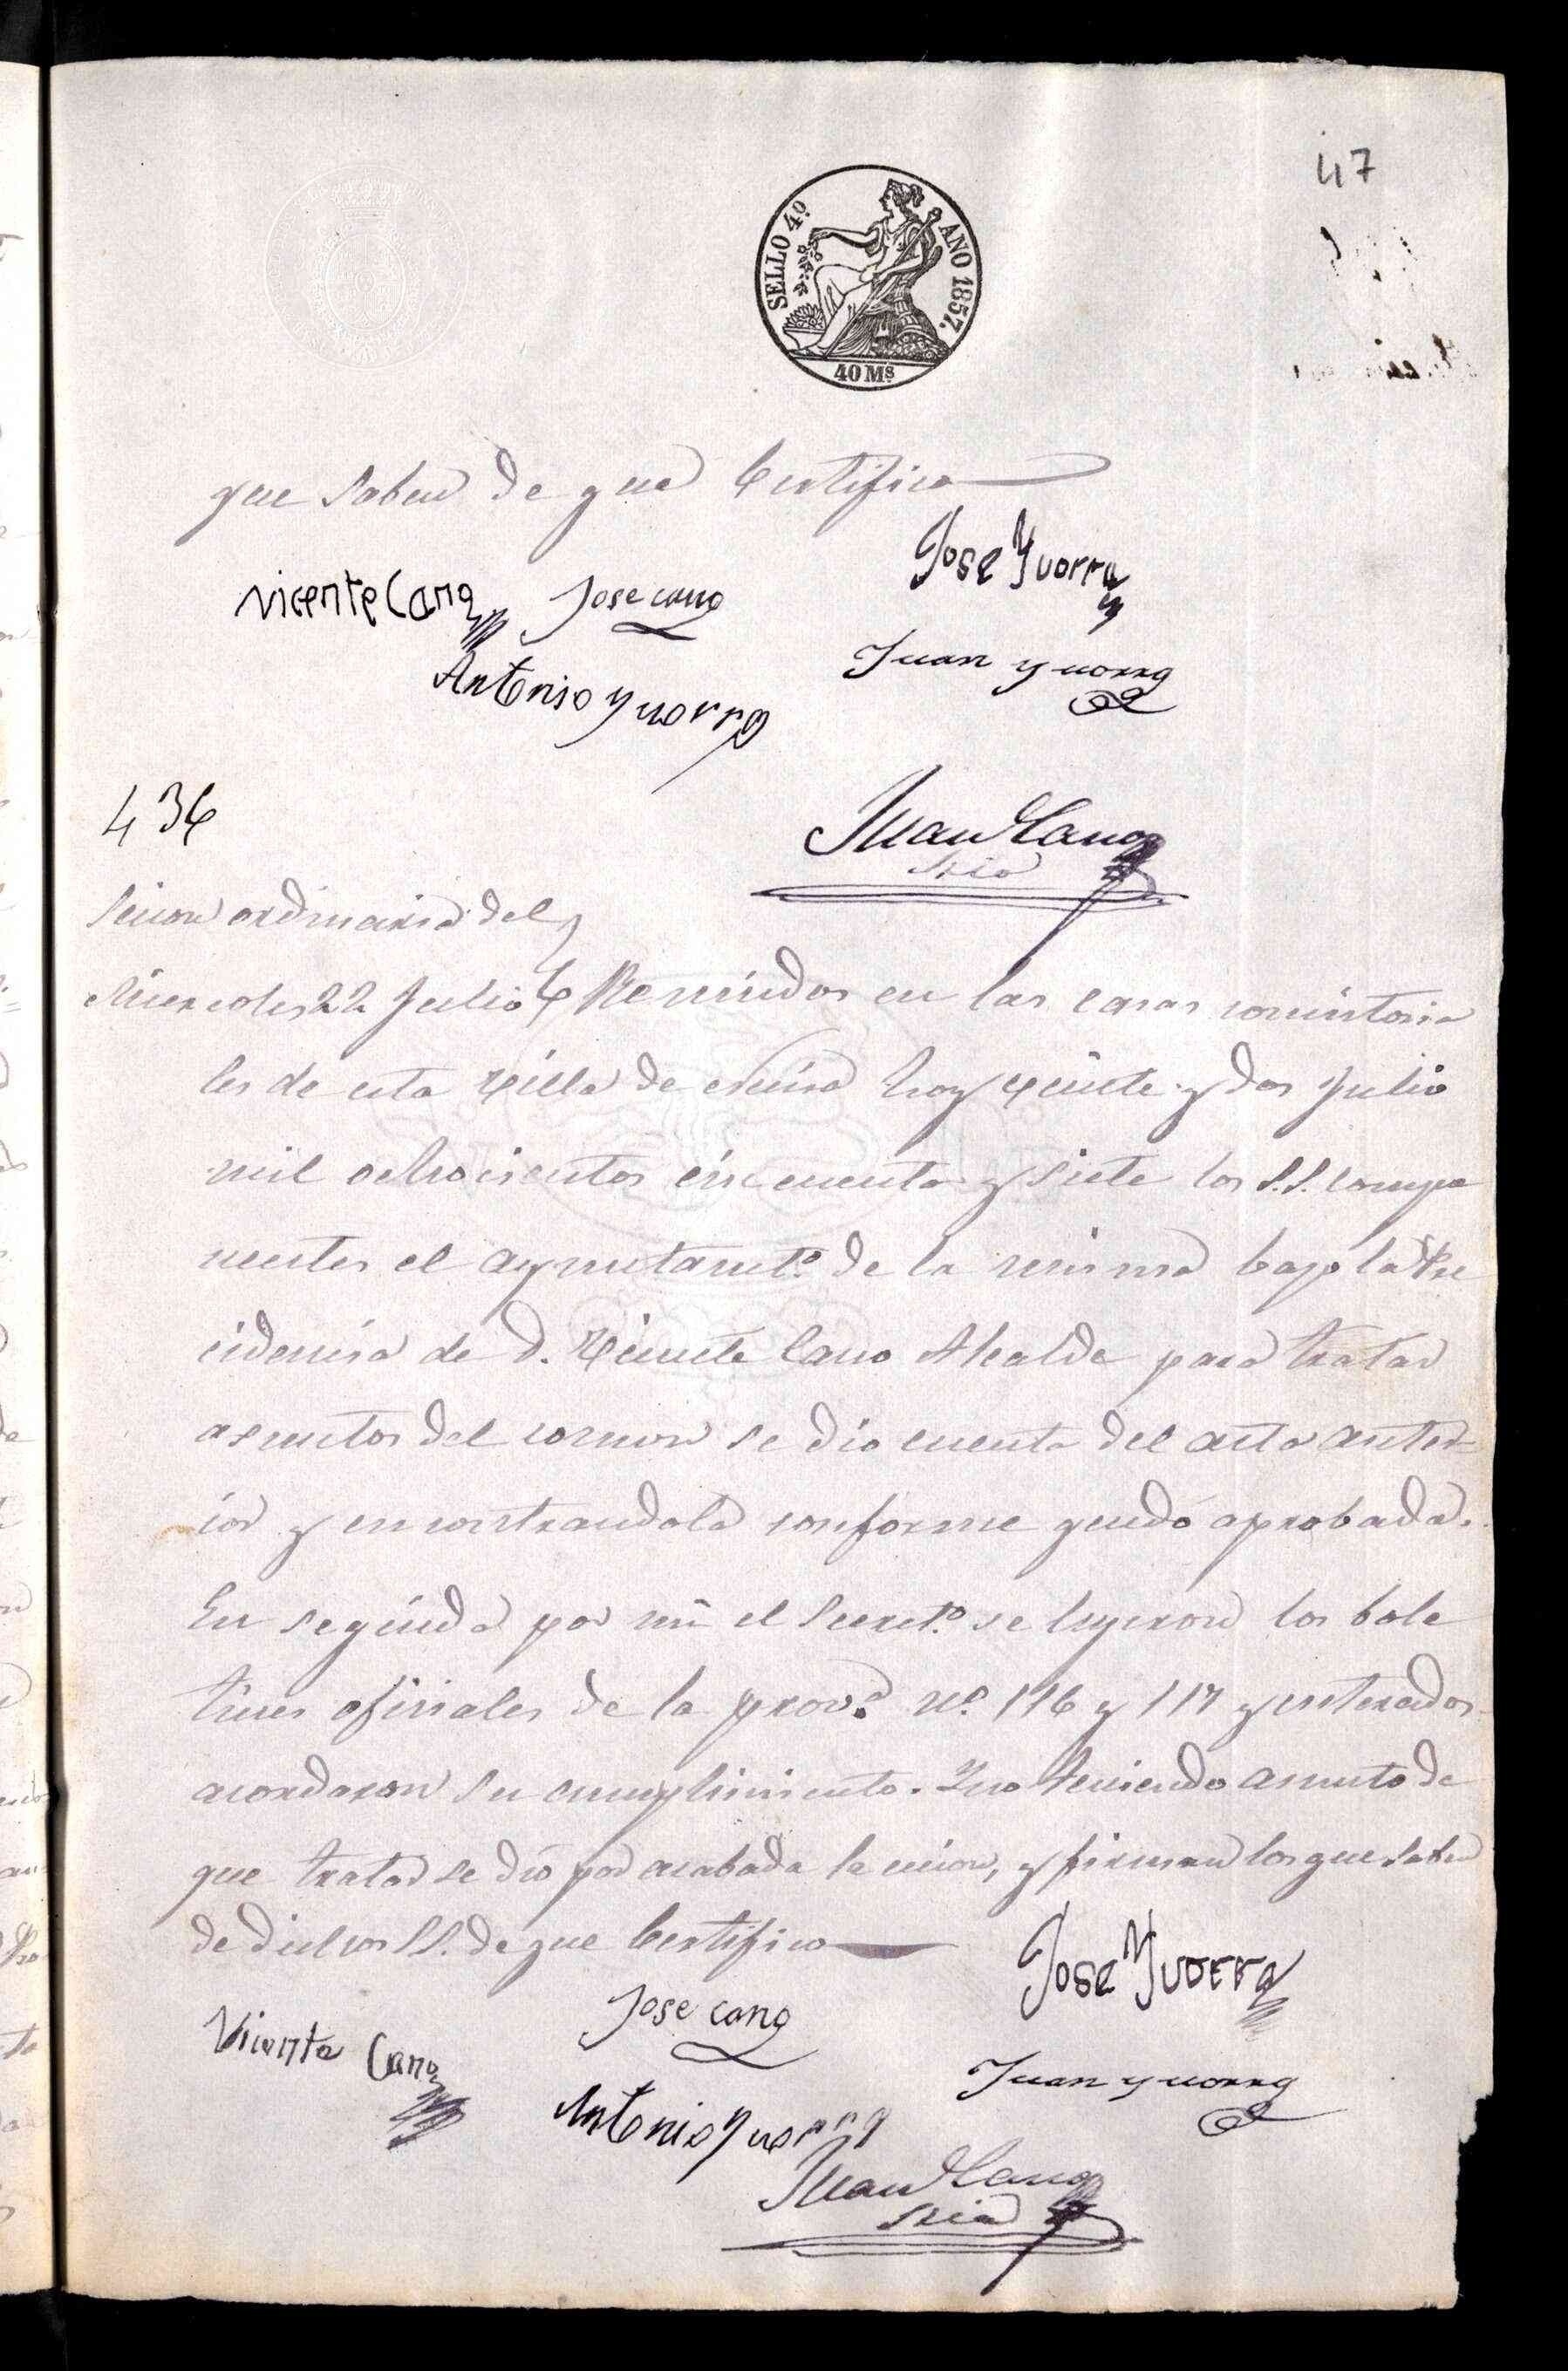 47
SELLO 4º AÑO 1857.
40 Ms
que saben de que Certifico
Jose Yvorra
Vicente Cano Jose cano
Juan yvorra
Antonio yvorra
436
Juan Cano
Srio
Secion ordinaria del
Miercoles 22 Julio Reunidos en las casas concistoria
les de esta Villa de hoy veinte y dos Julio
mil ochocientos cincuenta y siete los S.S. compo
nentes el ayuntamto. de la misma bajo la Pre
cidencia de D. Vicente Cano Alcalde para tratar
asuntos del comun se dio cuenta del acta anter
ior y encontrandola conforme quedó aprobada.
En seguida por mi el Secreto. se leyeron los bole
tines oficiales de la prova. ns. 116 y 117 y enterados
acordaron su cumplimiento. Y no teniendo asunto de
que tratar se dio por acabada la secion, y firman los que saben
de dichos SS. de que Certifico
Jose Yvorra
Jose cano
Vicente Cano
Juan yvorra
Antonio yvorra
Juan Cano
Srio